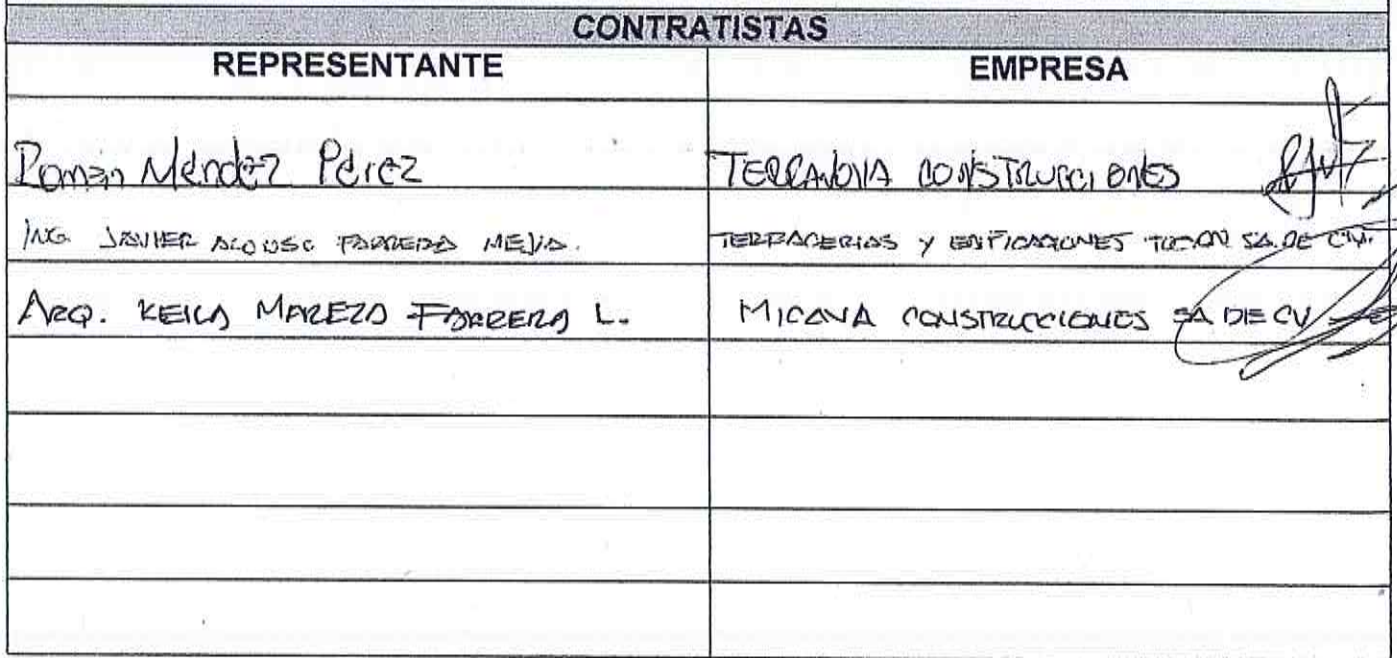 CONTRATISTAS
REPRESENTANTE EMPRESA
Román Méndez Pérez TERRANOVA CONSTRUCCIONES
ING. JAVIER ALONSO FARRERA MEJIA. TERRACERIAS Y EDIFICACIONES SA. DE CV.
ARQ. KEILA FARRERA L. MICAVA CONSTRUCCIONES SA DE CV